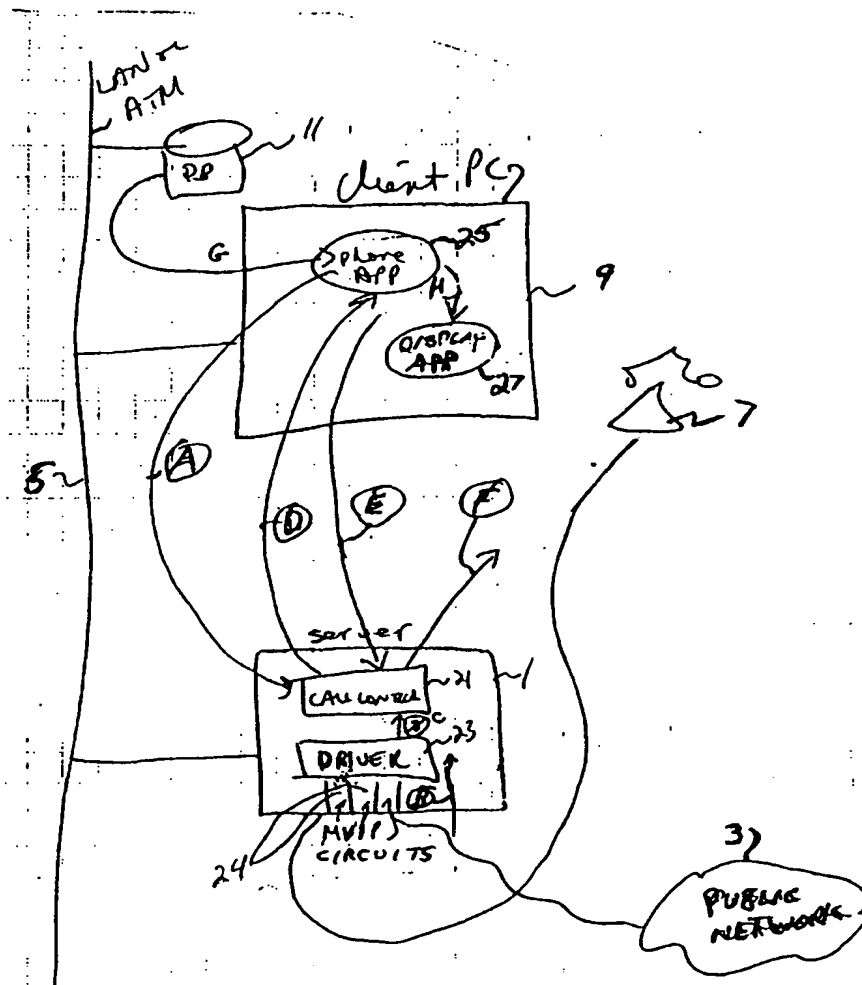 LAN or
ATM
11
DB
client PC
G
25
phone
APP
H
9
DISPLAY
APP
27
7
5
A
D
E
F
server
CALL CONTROL
21
1
C
DRIVER
23
B
MVIP
CIRCUITS
24
3
PUBLIC
NETWORK